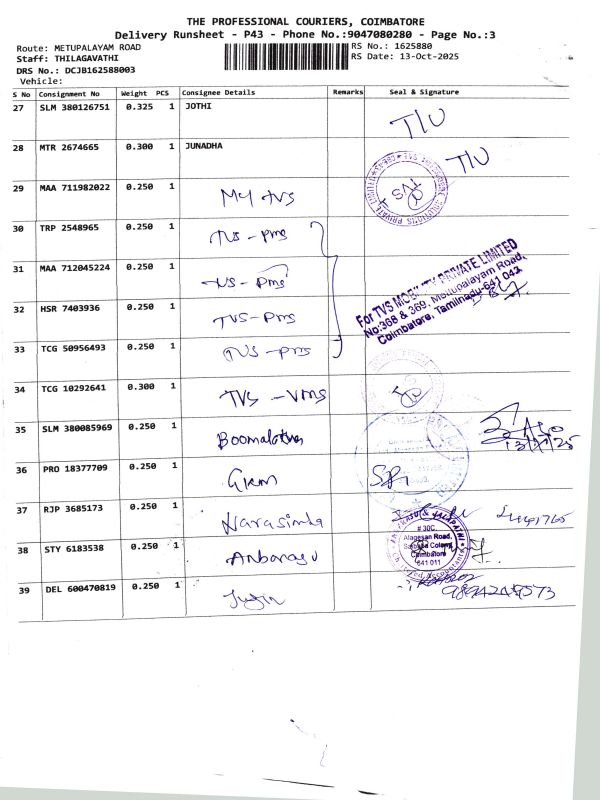 THE PROFESSIONAL COURIERS, COIMBATORE
Delivery Runsheet - P43 - Phone No.:9047080280 - Page No.:3
Route: METUPALAYAM ROAD
RS No.: 1625880
Staff: THILAGAVATHI
RS Date: 13-Oct-2025
DRS No.: DCJB162588003
Vehicle:
S No Consignment No Weight PCS Consignee Details Remarks Seal & Signature
27 SLM 380126751 0.325 1 JOTHI
28 MTR 2674665 0.300 1 JUNADHA
29 MAA 711982022 0.250 1 My TVS
30 TRP 2548965 0.250 1 TVS-pms
31 MAA 712045224 0.250 1 TVS-pms
32 HSR 7403936 0.250 1 TVS-pms
33 TCG 50956493 0.250 1 TVS-pms
For TVS MOBILITY PRIVATE LIMITED
No:368 & 369, Mettupalayam Road,
Coimbatore, Tamilnadu-641 043
34 TCG 10292641 0.300 1 TVS-VMS
35 SLM 380085969 0.250 1
36 PRO 18377709 0.250 1
37 RJP 3685173 0.250 1 Narasimha
38 STY 6183538 0.250 1
# 30C,
Alagesan Road,
Saibaba Colony,
Coimbatore
641 011
39 DEL 600470819 0.250 1